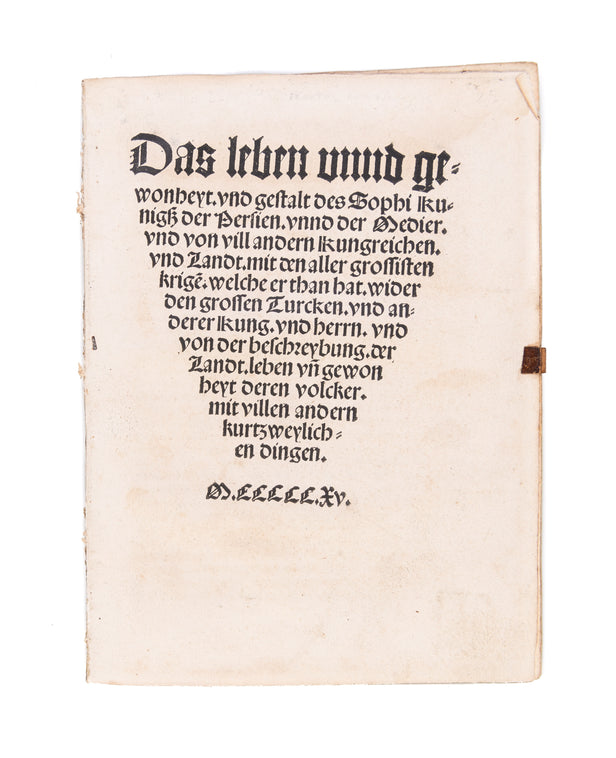 Das leben vnnd ge⸗
wonheyt. vnd gestalt des Sophi Ku⸗
nigß der Persien. vnnd der Medier.
vnd von vill andern Kungreichen.
vnd Landt. mit den aller grossisten
krigē. welche er than hat. wider
den grossen Turcken. vnd an⸗
derer Kung. vnd herrn. vnd
von der beschreybung. der
Landt. leben vñ gewon
heyt deren volcker.
mit villen andern
kurtzweylich⸗
en dingen.
M.CCCCC.Xv.